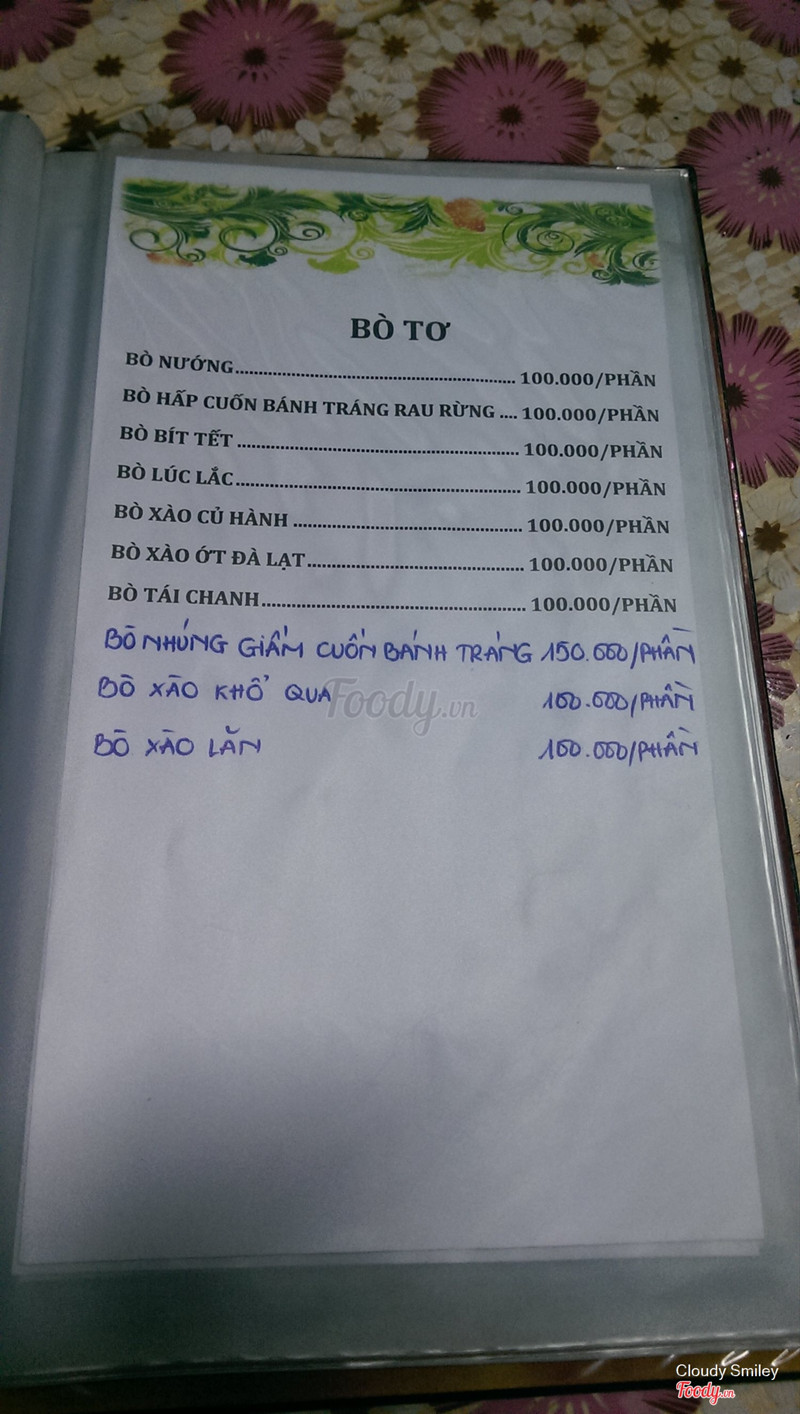 BÒ TƠ
BÒ NƯỚNG............................................................ 100.000/PHẦN
BÒ HẤP CUỐN BÁNH TRÁNG RAU RỪNG .... 100.000/PHẦN
BÒ BÍT TẾT ............................................................ 100.000/PHẦN
BÒ LÚC LẮC............................................................. 100.000/PHẦN
BÒ XÀO CỦ HÀNH ................................................. 100.000/PHẦN
BÒ XÀO ỚT ĐÀ LẠT............................................... 100.000/PHẦN
BÒ TÁI CHANH......................................................... 100.000/PHẦN
BÒ NHÚNG GIẤM CUỐN BÁNH TRÁNG 150.000/PHẦN
BÒ XÀO KHỔ QUA 100.000/PHẦN
BÒ XÀO LĂN 100.000/PHẦN
Foody.vn
Cloudy Smiley
Foody.vn